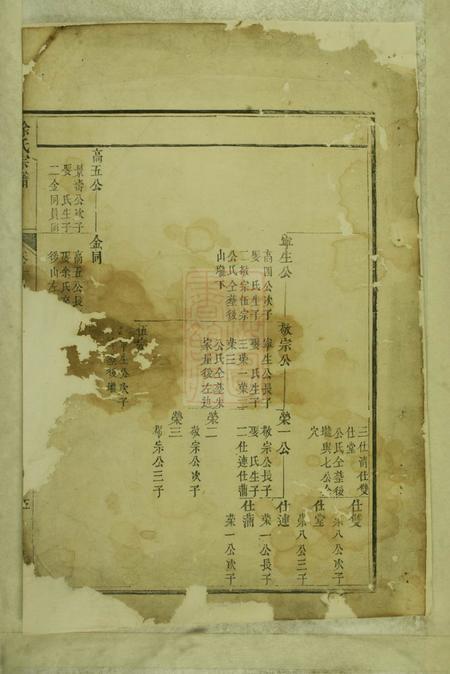 三仕清仕雙
仕堂
公氏仝塟後
壠與七公仝
穴
仕雙
榮八公次子
仕堂
榮八公三子
寧生公
高四公次子
娶 氏生子
二敬宗伍宗
公氏仝塟後
山壠下
敬宗公
寧生公長子
娶 氏生子
三榮一榮二
榮三
公氏仝塟朱
家屋後左邊
榮一公
敬宗公長子
娶 氏生子
二仕連仕蒲
仕連
榮一公長子
仕蒲
榮一公次子
榮二
敬宗公次子
榮三
敬宗公三子
伍宗
公次子
高五公
景壽公次子
娶 氏生子
二金同員同
金同
高五公長
娶余氏
後山左
氏宗譜